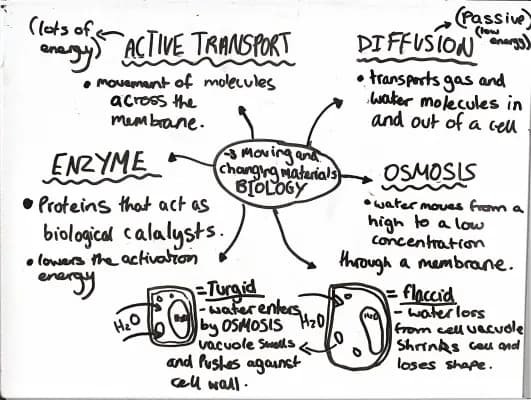 (lots of energy)
ACTIVE TRANSPORT
• movement of molecules
across the
membrane.
(Passive)
(low energy)
DIFFUSION
• transports gas and
water molecules in
and out of a cell
→ Moving and
changing materials
BIOLOGY
ENZYME
• Proteins that act as
biological calalysts.
• lowers the activation
energy
OSMOSIS
• water moves from a
high to a low
concentration
through a membrane.
H₂O
H₂O
= Turgid
- water enters
by OSMOSIS
vacuole swells
and Pushes against
cell wall.
H₂O
H₂O
= flaccid
- water loss
from cell vacuole
Shrinks cell and
loses shape.